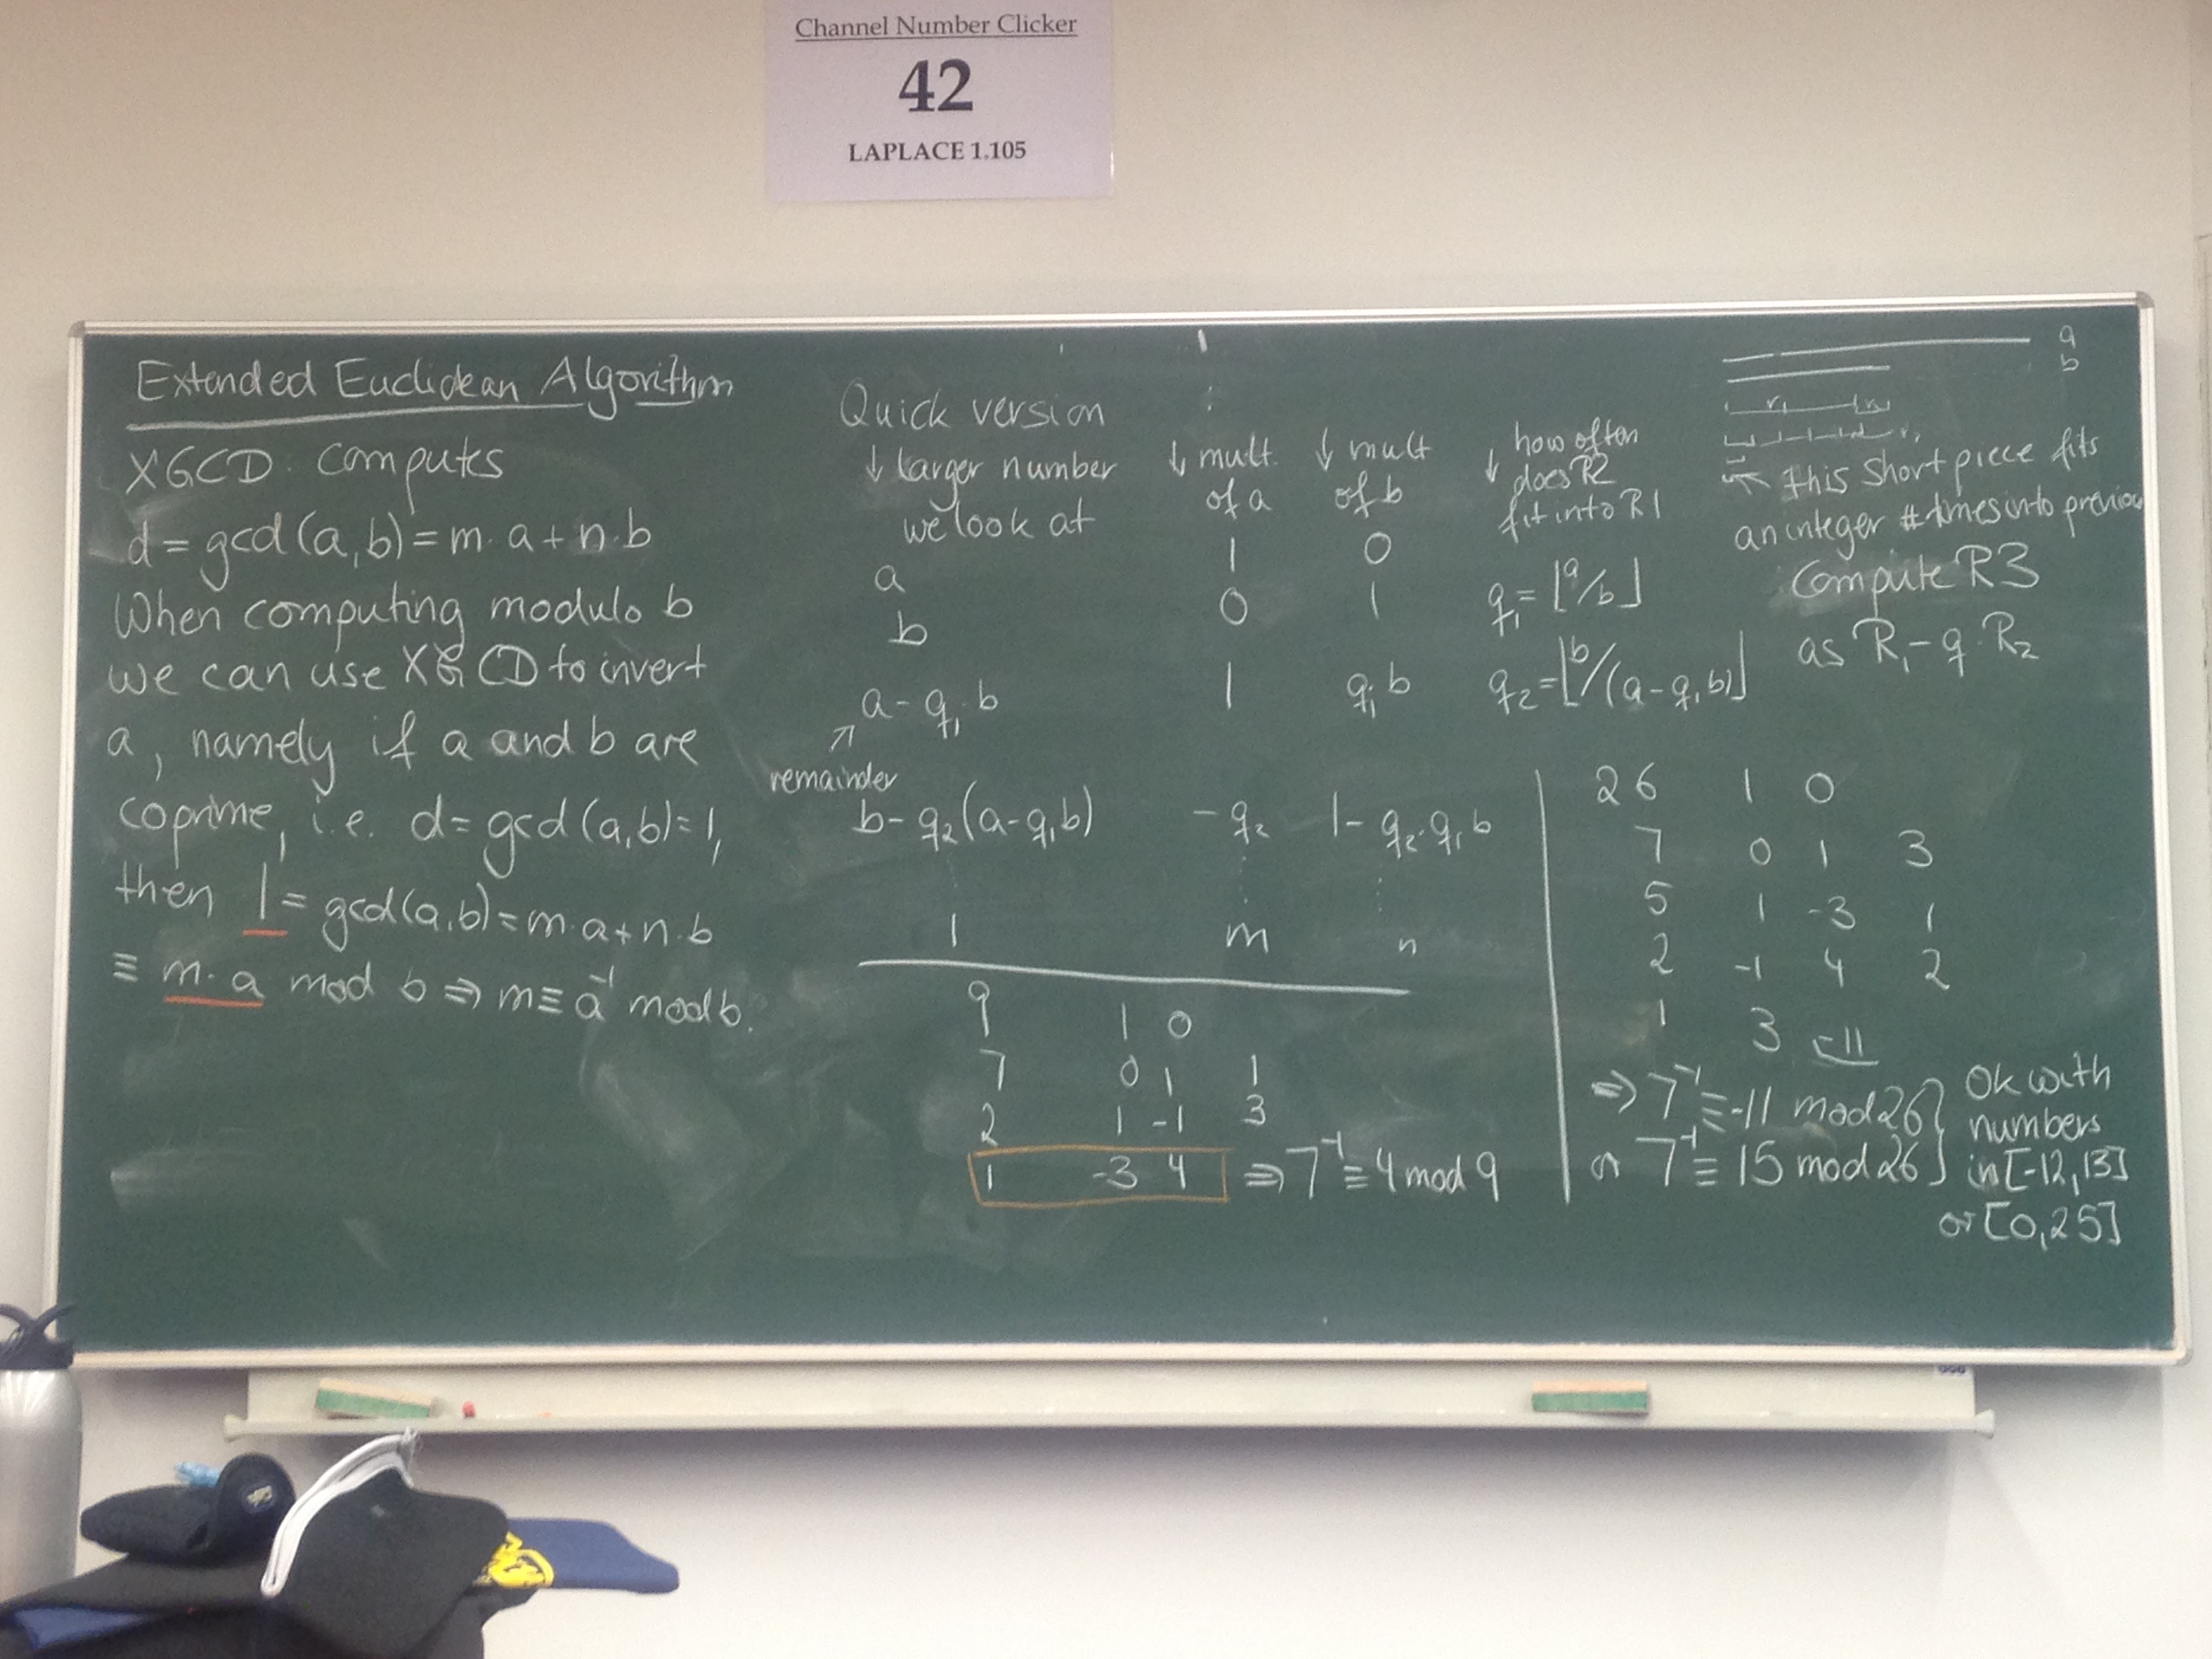 Channel Number Clicker
42
LAPLACE 1.105
Extended Euclidean Algorithm
XGCD computes
d = gcd(a,b) = m·a + n·b
When computing modulo b
we can use XGCD to invert
a, namely if a and b are
coprime, i.e. d = gcd(a,b) = 1,
then 1 = gcd(a,b) = m·a + n·b
≡ m·a mod b ⇒ m ≡ a⁻¹ mod b.
Quick version
↓ larger number we look at ↓ mult. of a ↓ mult of b ↓ how often does R2 fit into R1
a 1 0
b 0 1 q₁ = ⌊a/b⌋
a - q₁·b 1 q₁b q₂ = ⌊b/(a-q₁b)⌋
↗
remainder
b - q₂(a-q₁b) -q₂ 1 - q₂·q₁b
1 m n
9 1 0
7 0 1 1
2 1 -1 3
1 -3 4 ⇒ 7⁻¹ ≡ 4 mod 9
a
b
r₁
r₁
this short piece fits
an integer # times into previou
Compute R3
as R₁ - q·R₂
26 1 0
7 0 1 3
5 1 -3 1
2 -1 4 2
1 3 -11
⇒ 7⁻¹ ≡ -11 mod 26
or 7⁻¹ ≡ 15 mod 26
Ok with
numbers
in [-12,13]
or [0,25]